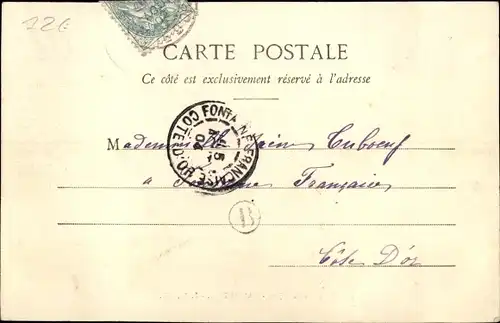 72€
CARTE POSTALE
Ce côté est exclusivement réservé à l'adresse
FONTAINE-FRANÇAISE
CÔTE-D'OR
5
04
Mademoiselle
à Fontaine Française
B
Côte D'or